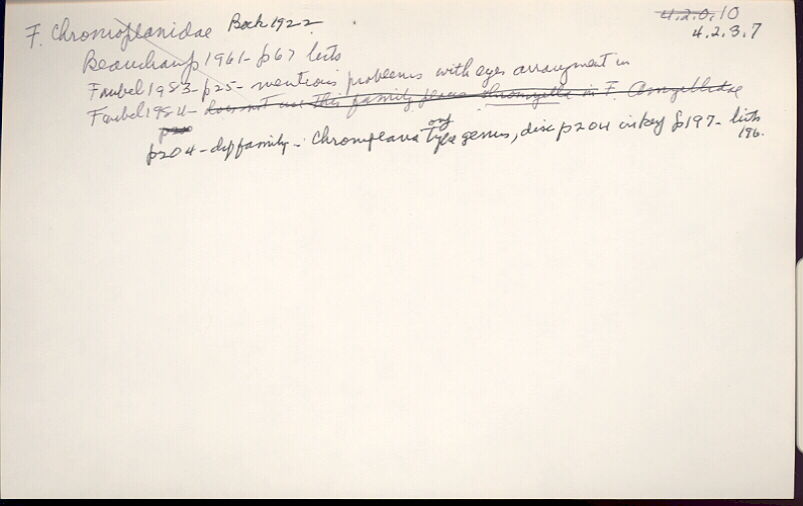 F. Chromoplanidae Bock 1922
4.2.0.10
4.2.3.7
Beauchamp 1961 - p67 lists
Faubel 1983 - p25 - mentions problems with eyes arrangment in
Faubel 1984 - does not use this family, places Chromyella in F. Amyellidae
p204 - def family - Chromoplana type genus, disc p204 in key p197 - lists
196.